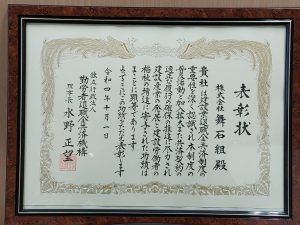 表彰状
株式会社 舞石組殿
貴社は建設業退職金共済制度の
重要性を深く認識され本制度の
普及活動や加入拡大また共済契約の
適正な履行の確保の推進に尽力され
建設産業の発展と建設労働者の
福祉の増進に寄与された功績は
まことに顕著であります
よってここにその功績をたたえ表彰します
令和四年十月一日
独立行政法人
勤労者退職金共済機構
理事長 水野正望